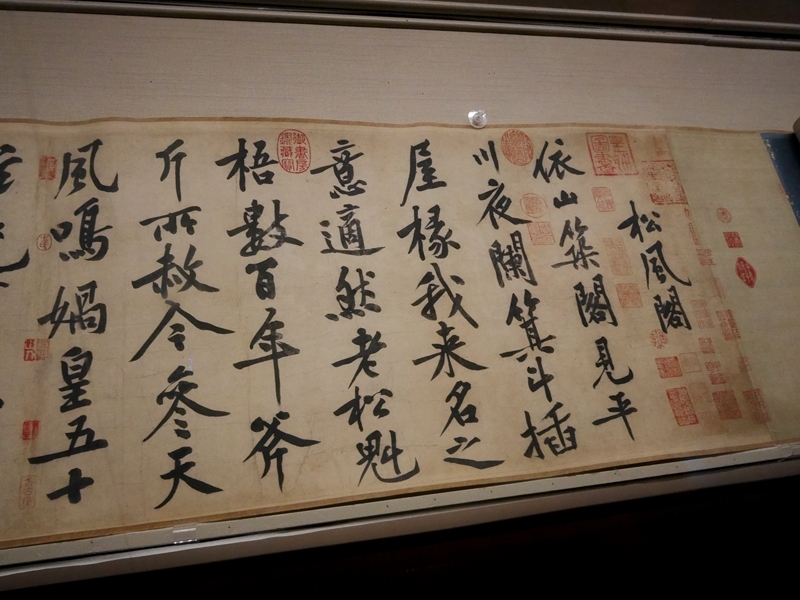 松風閣
依山築閣見平
川夜闌箕斗插
屋椽我来名之
意適然老松魁
梧數百年斧
斤所赦今参天
風鳴媧皇五十